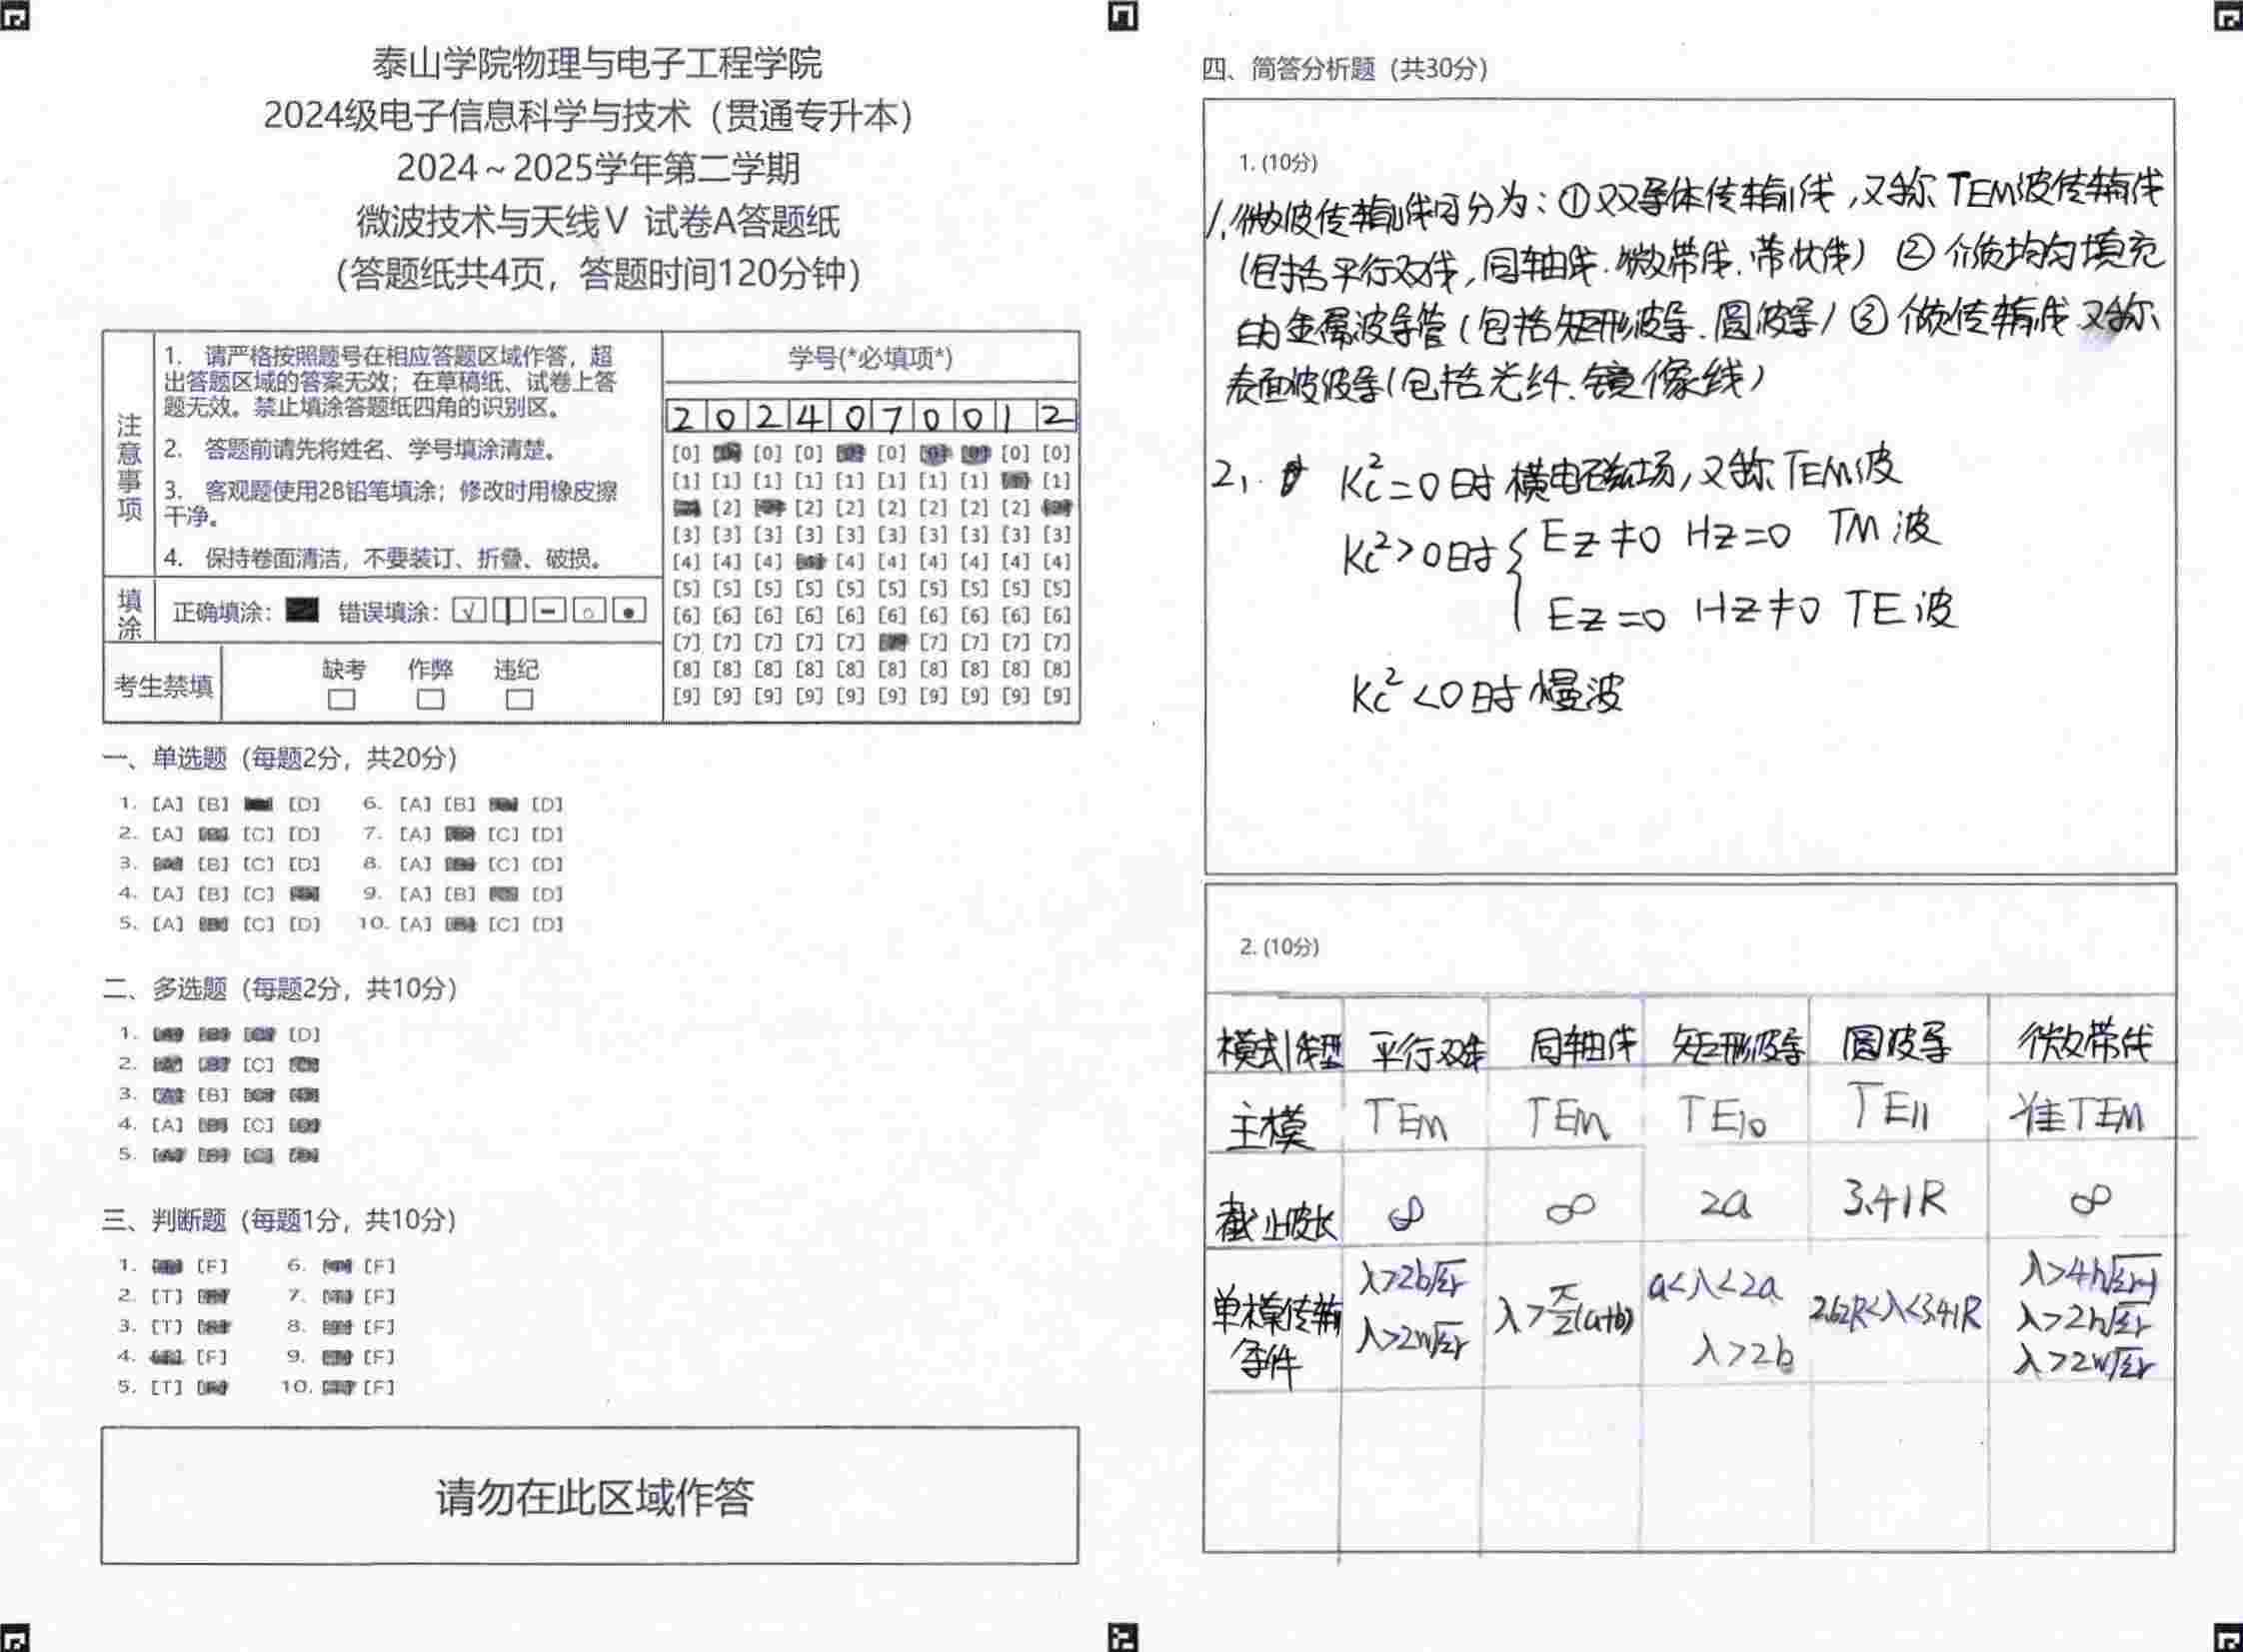 泰山学院物理与电子工程学院
2024级电子信息科学与技术（贯通专升本）
2024～2025学年第二学期
微波技术与天线Ⅴ 试卷A答题纸
（答题纸共4页，答题时间120分钟）
注意事项
1. 请严格按照题号在相应答题区域作答，超
出答题区域的答案无效；在草稿纸、试卷上答
题无效。禁止填涂答题纸四角的识别区。
2. 答题前请先将姓名、学号填涂清楚。
3. 客观题使用2B铅笔填涂；修改时用橡皮擦
干净。
4. 保持卷面清洁，不要装订、折叠、破损。
填涂 正确填涂： 错误填涂：
考生禁填 缺考 作弊 违纪
学号(*必填项*)
2 0 2 4 0 7 0 0 1 2
[0] [0] [0] [0] [0] [0] [0]
[1] [1] [1] [1] [1] [1] [1] [1] [1]
[2] [2] [2] [2] [2] [2] [2]
[3] [3] [3] [3] [3] [3] [3] [3] [3] [3]
[4] [4] [4] [4] [4] [4] [4] [4] [4]
[5] [5] [5] [5] [5] [5] [5] [5] [5] [5]
[6] [6] [6] [6] [6] [6] [6] [6] [6] [6]
[7] [7] [7] [7] [7] [7] [7] [7] [7]
[8] [8] [8] [8] [8] [8] [8] [8] [8] [8]
[9] [9] [9] [9] [9] [9] [9] [9] [9] [9]
一、单选题（每题2分，共20分）
1. [A] [B] [D] 6. [A] [B] [D]
2. [A] [C] [D] 7. [A] [C] [D]
3. [B] [C] [D] 8. [A] [C] [D]
4. [A] [B] [C] 9. [A] [B] [D]
5. [A] [C] [D] 10. [A] [C] [D]
二、多选题（每题2分，共10分）
1. [D]
2. [C]
3. [B]
4. [A] [C]
5.
三、判断题（每题1分，共10分）
1. [F] 6. [F]
2. [T] 7. [F]
3. [T] 8. [F]
4. [F] 9. [F]
5. [T] 10. [F]
请勿在此区域作答
四、简答分析题（共30分）
1. (10分)
1. 微波传输线可分为：①双导体传输线，又称TEM波传输线
（包括平行双线，同轴线.微带线.带状线） ② 介质均匀填充
的金属波导管（包括矩形波导.圆波导）③ 传输线 又称
表面波波导（包括光纤.镜像线）
2, Kc²=0时横电磁场，又称TEM波
Kc²>0时 { Ez≠0 Hz=0 TM波
Ez=0 Hz≠0 TE波
Kc²<0时慢波
2. (10分)
模式\线型 平行双线 同轴线 矩形波导 圆波导 微带线
主模 TEM TEM TE10 TE11 准TEM
截止波长 ∞ ∞ 2a 3.41R ∞
单模传输条件 λ>2b√εr λ>2w√εr λ>π/2(a+b) a<λ<2a λ>2b 2.62R<λ<3.41R λ>4h√εr-1 λ>2h√εr λ>2w√εr